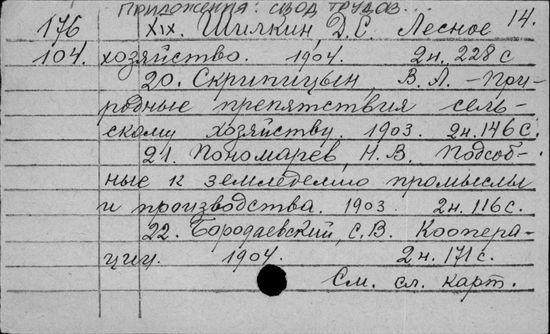 ПРИЛОЖЕНИЯ: СВОД ТРУДОВ...
176 XIX. Шилкин, Д.С. Лесное 14.
104. хозяйство. 1904. 2н. 228 с
20. Скрипицын, В.А. - При-
родные препятствия сель-
скому хозяйству. 1903. 2н. 146 с.
21. Пономарёв, Н.В. Подсоб-
ные к земледелию промыслы
и производства. 1903. 2н. 116 с.
22. Бородаевский, С.В. Коопера-
ции. 1904. 2н. 171 с.
См. сл. карт.